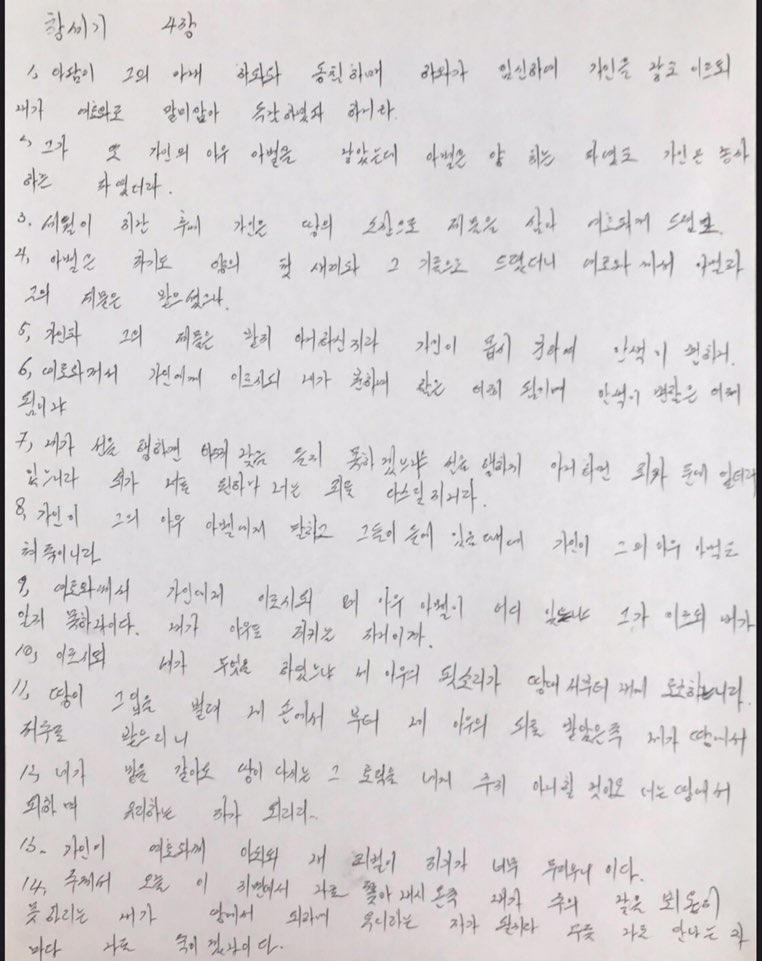 창세기 4장
1, 아담이 그의 아내 하와와 동침하매 하와가 임신하여 가인을 낳고 이르되
내가 여호와로 말미암아 득남하였다 하니라.
2, 그가 또 가인의 아우 아벨을 낳았는데 아벨은 양 치는 자였고 가인은 농사
하는 자였더라.
3. 세월이 지난 후에 가인은 땅의 소산으로 제물을 삼아 여호와께 드렸고
4, 아벨은 자기도 양의 첫 새끼와 그 기름으로 드렸더니 여호와께서 아벨과
그의 제물은 받으셨으나.
5, 가인과 그의 제물은 받지 아니하신지라 가인이 몹시 분하여 안색이 변하니.
6, 여호와께서 가인에게 이르시되 네가 분하여 함은 어찌 됨이며 안색이 변함은 어찌
됨이냐
7, 네가 선을 행하면 어찌 낯을 들지 못하겠느냐 선을 행하지 아니하면 죄가 문에 엎드려
있느니라 죄가 너를 원하나 너는 죄를 다스릴지니라.
8, 가인이 그의 아우 아벨에게 말하고 그들이 들에 있을 때에 가인이 그의 아우 아벨을
쳐죽이니라
9, 여호와께서 가인에게 이르시되 네 아우 아벨이 어디 있느냐 그가 이르되 내가
알지 못하나이다. 내가 아우를 지키는 자니이까.
10, 이르시되 네가 무엇을 하였느냐 네 아우의 핏소리가 땅에서부터 내게 호소하느니라.
11, 땅이 그 입을 벌려 네 손에서 부터 네 아우의 피를 받았은즉 네가 땅에서
저주를 받으리니
12, 네가 밭을 갈아도 땅이 다시는 그 효력을 네게 주지 아니할 것이요 너는 땅에서
피하며 유리하는 자가 되리라.
13. 가인이 여호와께 아뢰되 내 죄벌이 지기가 너무 무거우니이다.
14, 주께서 오늘 이 지면에서 나를 쫓아내시온즉 내가 주의 낯을 뵈옵지
못하리니 내가 땅에서 피하며 유리하는 자가 될지라 무릇 나를 만나는 자
마다 나를 죽이겠나이다.